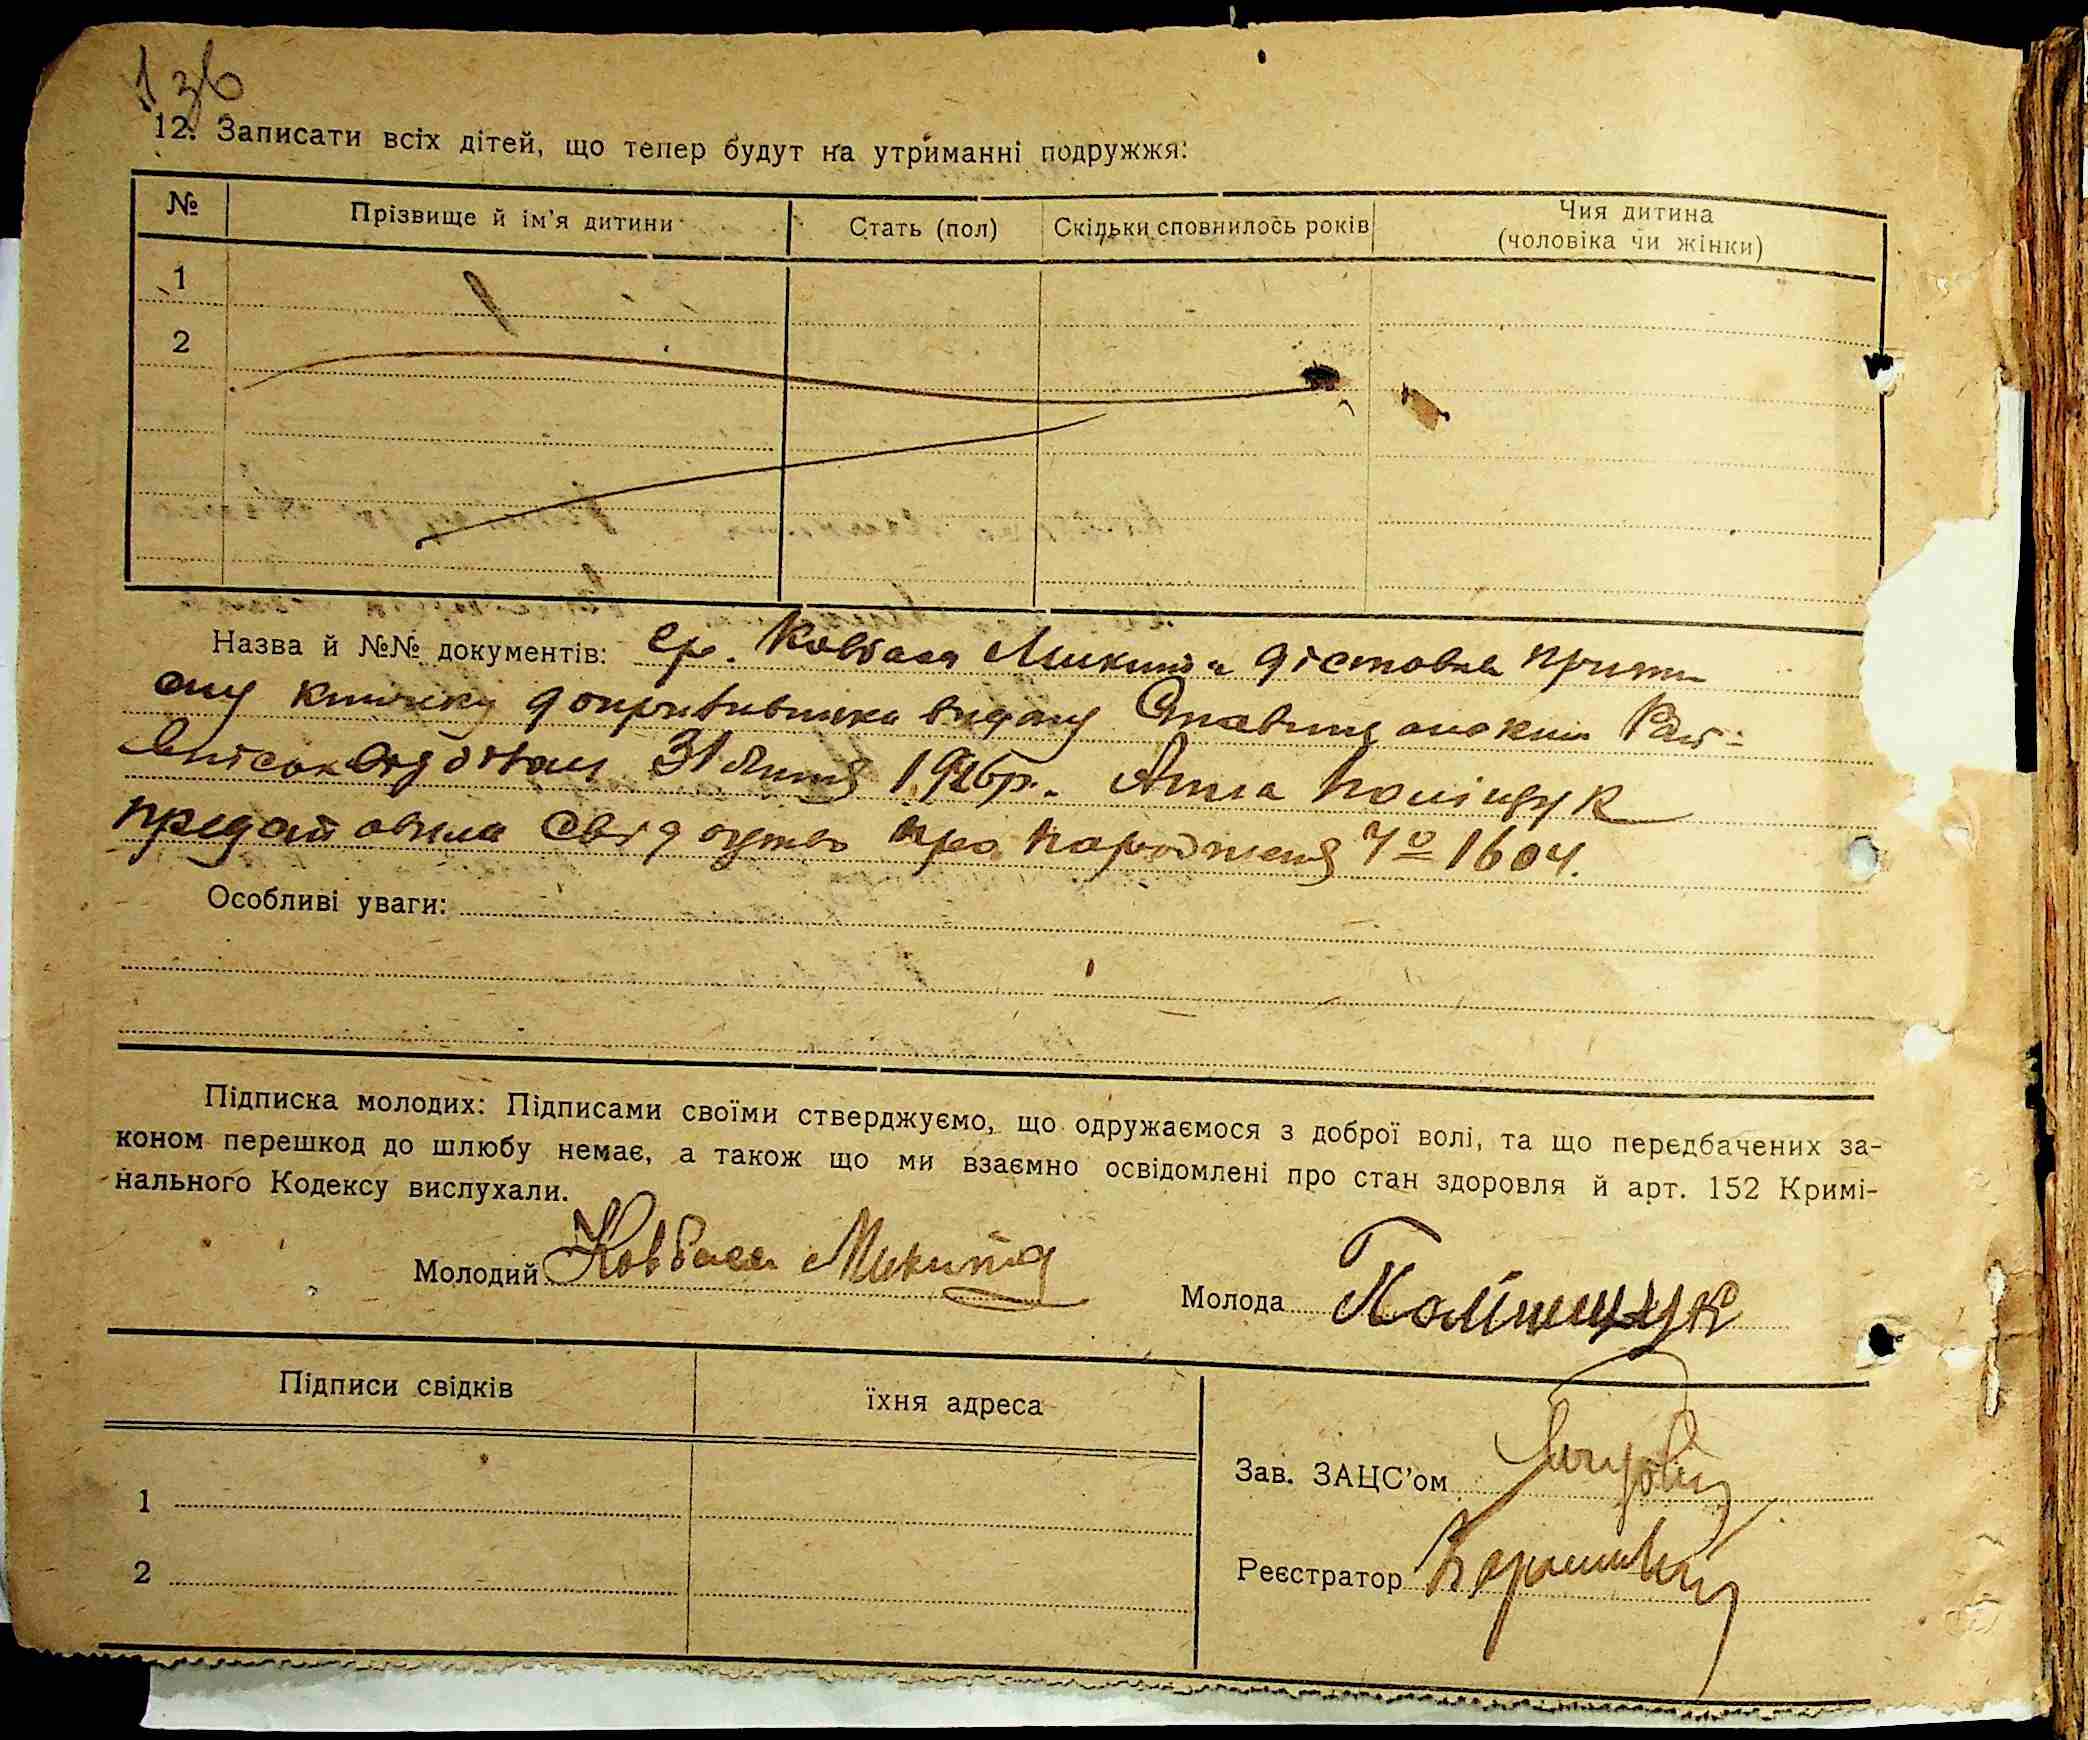 136
12. Записати всіх дітей, що тепер будут на утриманні подружжя:
№ Прізвище й ім'я дитини Стать (пол) Скільки сповнилось років Чия дитина
(чоловіка чи жінки)
1
2
Назва й №№ документів: Гр. Ковбаса Микита
книжку допризивника видану
31 липня 1926р. Анна Поліщук
про народження № 1604.
Особливі уваги:
Підписка молодих: Підписами своїми стверджуємо, що одружаємося з доброї волі, та що передбачених за-
коном перешкод до шлюбу немає, а також що ми взаємно освідомлені про стан здоровля й арт. 152 Кримі-
нального Кодексу вислухали.
Молодий Ковбаса Микита
Молода
Підписи свідків їхня адреса
Зав. ЗАЦС'ом
1
Реєстратор
2